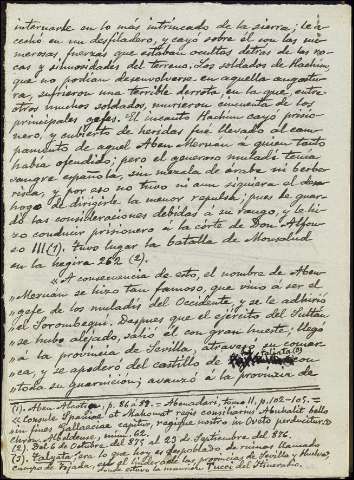 internarse en lo más intrincado de la sierra; le a-
cechó en un desfiladero, y cayó sobre él con las nu-
merosas fuerzas que estaban ocultas detras de las ro-
cas y sinuosidades del terreno. Los soldados de Hachim,
que no podían desenvolverse en aquella angostu-
ra, sufrieron una terrible derrota, en la que, entre
otros muchos soldados, murieron cincuenta de los
principales gefes. El incauto Hachim cayó prisio-
nero, y cubierto de heridas fué llevado al cam-
pamento de aquel Aben Meruan á quien tanto
habia ofendido; pero el generoso muladí tenia
sangre española, sin mezcla de árabe ni berbe-
risca, y por eso no tuvo ni aun siquiera el desa-
hogo de dirigirle la menor repulsa; pues le guar-
dó las consideraciones debidas á su rango, y le hi-
zo conducir prisionero á la corte de Don Alfon-
so III (1). Tuvo lugar la batalla de Monsalud
en la hegira 262 (2).
"A consecuencia de esto, el nombre de Aben
"Meruan se hizo tan famoso, que vino á ser el
"gefe de los muladís del Occidente, y se le adhirió
"el Sorombequi. Despues que el ejército del Sultan
"se hubo alejado, salió él con gran hueste; llegó
"á la provincia de Sevilla, atravesó su comar-
"ca, y se apoderó del castillo de Talyata (3) con
"toda su guarnicion; avanzó á la provincia de
(1). Aben Alcotiya, p. 88 á 89. = Abenadari, tomo II, p. 102-105. =
"Consule Spaniæ et Mahomat regis consiliarius Abuhalit bello
"in fines Gallæciæ capitur, regique nostro in Oveto perducitur.
Chron. Albeldense, núm. 62.
(2). Del 6 de Octubre del 875 al 23 de Septiembre del 876.
(3). Talyata, era lo que hoy es despoblado de ruinas llamado
campo de Tejada, en el linde de las provincias de Sevilla y Huelva,
donde estuvo la mansión Tucci del Itinerario.